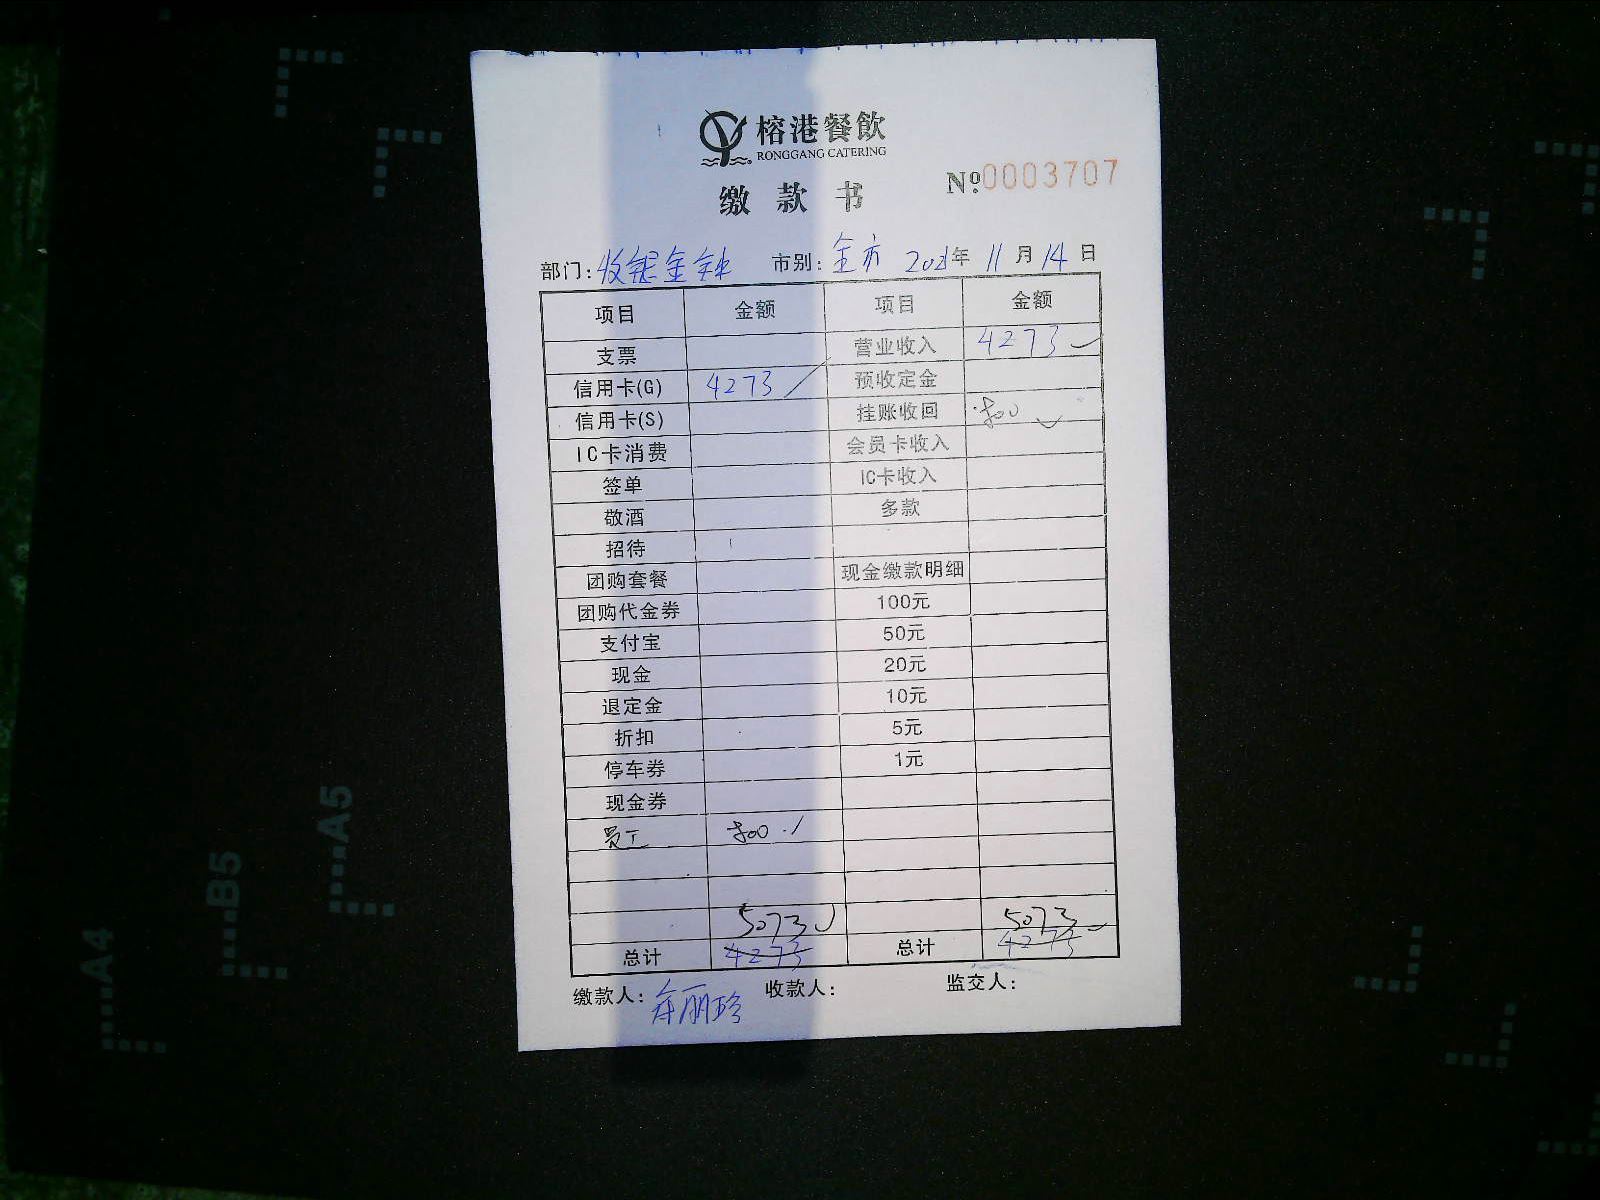 榕港餐飲
RONGGANG CATERING
缴款书 №0003707
部门: 收银金钟 市别: 全市 2021年11月14日
项目 金额 项目 金额
支票 营业收入 4273
信用卡(G) 4273 预收定金
信用卡(S) 挂账收回 800
IC卡消费 会员卡收入
签单 IC卡收入
敬酒 多款
招待
团购套餐 现金缴款明细
团购代金券 100元
支付宝 50元
现金 20元
退定金 10元
折扣 5元
停车券 1元
现金券
员工 800
5073 5073
总计 4273 总计 4273
缴款人: 丽珍 收款人: 监交人:
A4
B5
A5